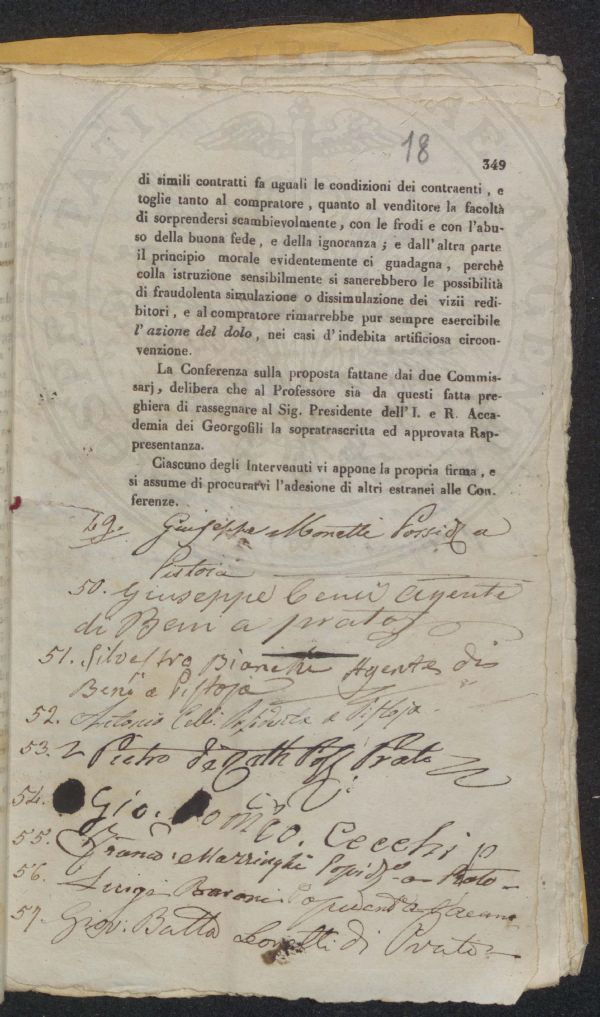 18
349
di simili contratti fa uguali le condizioni dei contraenti , e
toglie tanto al compratore , quanto al venditore la facoltà
di sorprendersi scambievolmente , con le frodi e con l'abu-
so della buona fede , e della ignoranza ; e dall' altra parte
il principio morale evidentemente ci guadagna , perchè
colla istruzione sensibilmente si sanerebbero le possibilità
di fraudolenta simulazione o dissimulazione dei vizii redi-
bitori , e al compratore rimarrebbe pur sempre esercibile
l' azione del dolo , nei casi d' indebita artificiosa circon-
venzione.
La Conferenza sulla proposta fattane dai due Commis-
sarj , delibera che al Professore sia da questi fatta pre-
ghiera di rassegnare al Sig. Presidente dell' I. e R. Acca-
demia dei Georgofili la sopratrascritta ed approvata Rap-
presentanza.
Ciascuno degli Intervenuti vi appone la propria firma , e
si assume di procurarvi l'adesione di altri estranei alle Con-
ferenze.
49. Giuseppe Monetti Possid a
Pistoia
50. Giuseppe Cenni Agente
di Beni a prato
51. Silvestro Bianchi Agente di
Beni a Pistoja
52. Antonio a Pistoja
53. Pietro Prato
54. Gio. Domco. Cecchi
55. Franco. Mazzinghi a Prato
56. Luigi Baroni
57. Giov. Batta di Prato